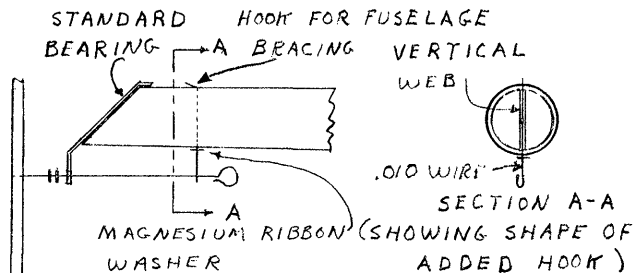 STANDARD BEARING
HOOK FOR FUSELAGE BRACING
A
VERTICAL WEB
.010 WIRE
A
SECTION A-A
(SHOWING SHAPE OF ADDED HOOK)
MAGNESIUM RIBBON WASHER